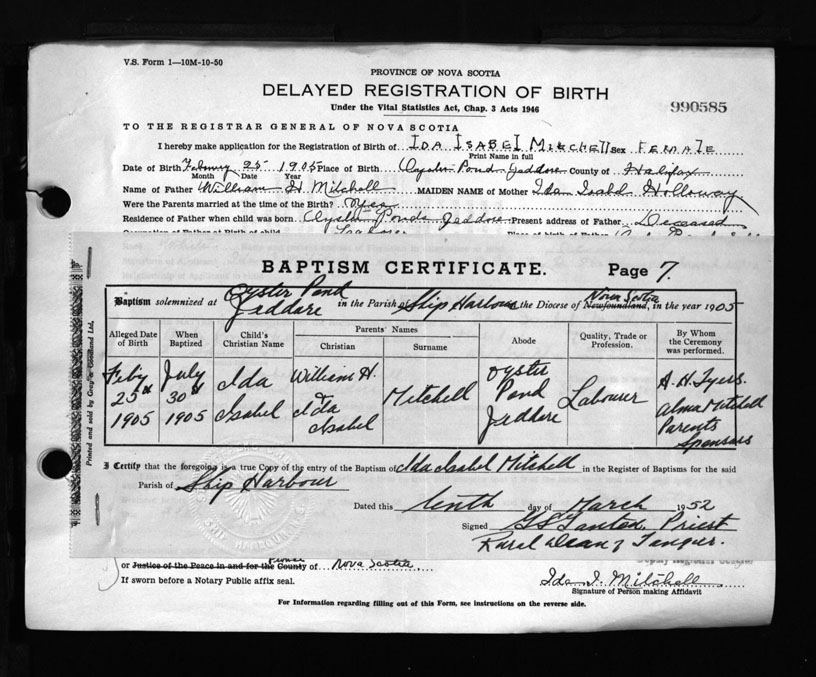 V.S. Form 1—10M-10-50
PROVINCE OF NOVA SCOTIA
DELAYED REGISTRATION OF BIRTH
Under the Vital Statistics Act, Chap. 3 Acts 1946
990585
TO THE REGISTRAR GENERAL OF NOVA SCOTIA
I hereby make application for the Registration of Birth of IDA ISABEL MITCHELL Sex FEMALE
Print Name in full
Date of Birth February 25 1905 Place of Birth Oyster Pond Jeddore County of Halifax
Month Date Year
Name of Father William H Mitchell MAIDEN NAME of Mother Ida Isabel Holloway
Were the Parents married at the time of the Birth? Yes
Residence of Father when child was born Oyster Ponds Jeddore Present address of Father Deceased
BAPTISM CERTIFICATE. Page 7.
Baptism solemnized at Oyster Pond Jeddore in the Parish of Ship Harbour the Diocese of Newfoundland, Nova Scotia in the year 1905
Alleged Date of Birth
When Baptized
Child's Christian Name
Parents' Names
Christian
Surname
Abode
Quality, Trade or Profession.
By Whom the Ceremony was performed.
Feby 25th 1905
July 30th 1905
Ida Isabel
William H.
Ida Isabel
Mitchell
Oyster Pond Jeddore
Labourer
A. H. Tyers.
Alma Mitchell
Parents
Sponsors
Printed and sold by Gray & Goodland Ltd.
I Certify that the foregoing is a true Copy of the entry of the Baptism of Ida Isabel Mitchell in the Register of Baptisms for the said
Parish of Ship Harbour
Dated this tenth day of March 1952
Signed Priest
Rural Dean of Tangier.
or Justice of the Peace in and for the County of Nova Scotia
If sworn before a Notary Public affix seal.
Ida I. Mitchell
Signature of Person making Affidavit
For Information regarding filling out of this Form, see instructions on the reverse side.